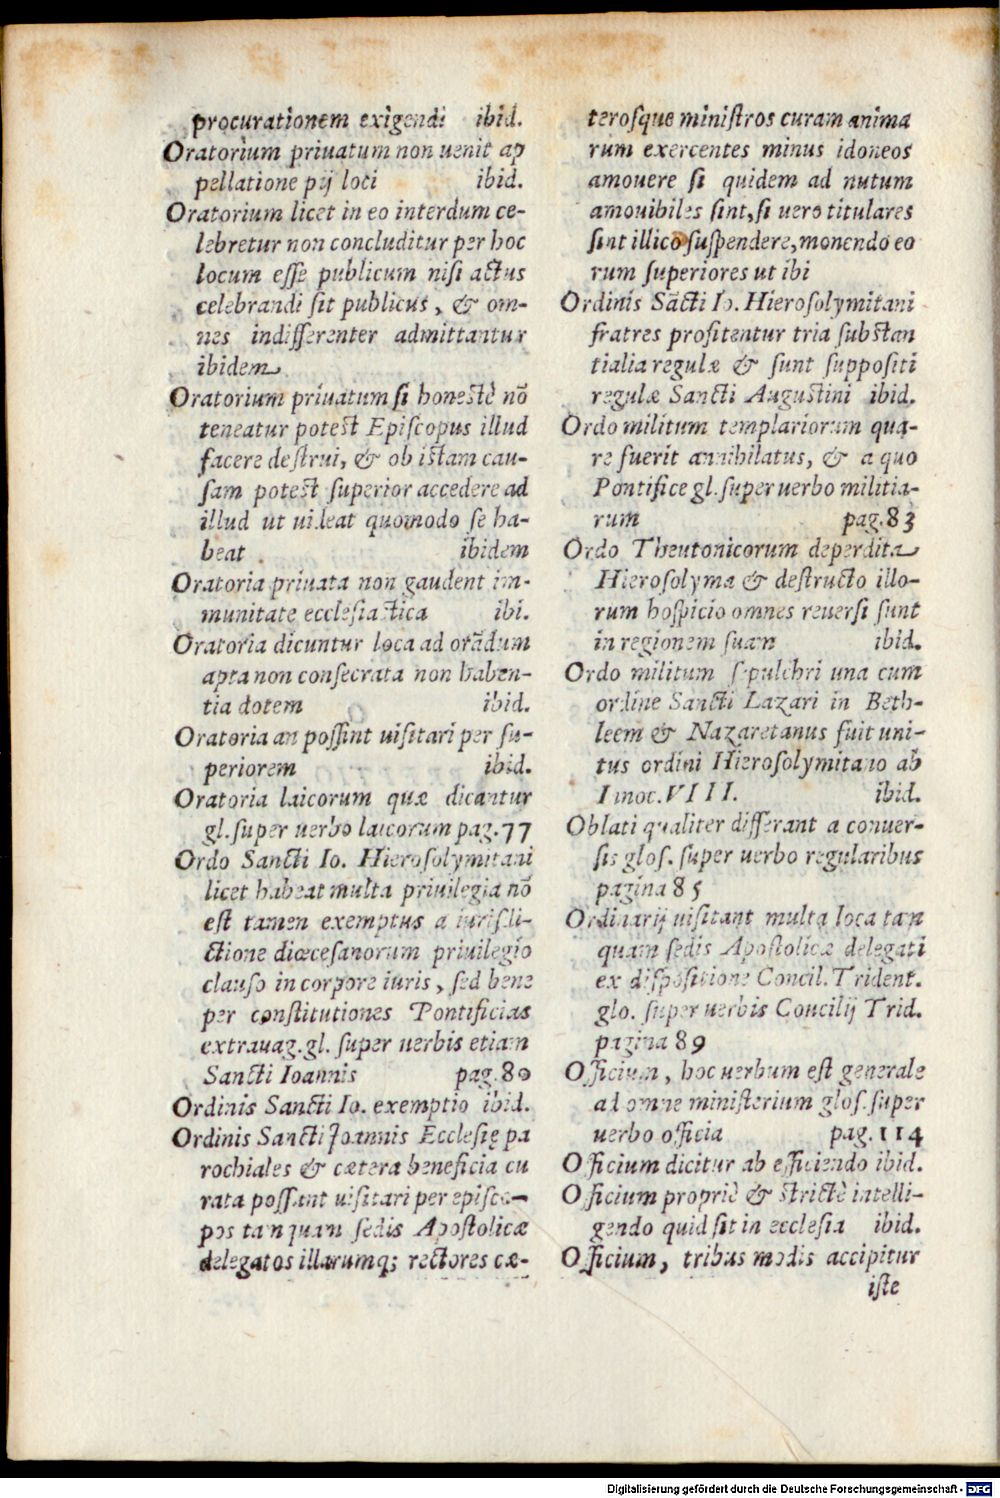 procurationem exigendi ibid.
Oratorium priuatum non uenit ap
pellatione pij loci ibid.
Oratorium licet in eo interdum ce-
lebretur non concluditur per hoc
locum esse publicum nisi actus
celebrandi sit publicus, & om-
nes indifferenter admittantur
ibidem
Oratorium priuatum si honestè nō
teneatur potest Episcopus illud
facere destrui, & ob istam cau-
sam potest superior accedere ad
illud ut uideat quomodo se ha-
beat ibidem
Oratoria priuata non gaudent im-
munitate ecclesiastica ibi.
Oratoria dicuntur loca ad orādum
apta non consecrata non haben-
tia dotem ibid.
Oratoria an possint uisitari per su-
periorem ibid.
Oratoria laicorum quæ dicantur
gl. super uerbo laicorum pag. 77
Ordo Sancti Io. Hierosolymitani
licet habeat multa priuilegia nō
est tamen exemptus a iurisdi-
ctione diœcesanorum priuilegio
clauso in corpore iuris, sed bene
per constitutiones Pontificias
extrauag. gl. super uerbis etiam
Sancti Ioannis pag. 80
Ordinis Sancti Io. exemptio ibid.
Ordinis Sancti Joannis Ecclesię pa
rochiales & cætera beneficia cu
rata possunt uisitari per episco-
pos tanquam sedis Apostolicæ
delegatos illarumq; rectores cæ-
terosque ministros curam anima
rum exercentes minus idoneos
amouere si quidem ad nutum
amouibiles sint, si uero titulares
sint illico suspendere, monendo eo
rum superiores ut ibi
Ordinis Sācti Io. Hierosolymitani
fratres profitentur tria substan
tialia regulæ & sunt suppositi
regulæ Sancti Augustini ibid.
Ordo militum templariorum qua-
re fuerit annihilatus, & a quo
Pontifice gl. super uerbo militia-
rum pag. 83
Ordo Theutonicorum deperdita
Hierosolyma & destructo illo-
rum hospicio omnes reuersi sunt
in regionem suam ibid.
Ordo militum sepulchri una cum
ordine Sancti Lazari in Beth-
leem & Nazaretanus fuit uni-
tus ordini Hierosolymitano ab
Innoc. VIII. ibid.
Oblati qualiter differant a conuer-
sis glos. super uerbo regularibus
pagina 85
Ordinarij uisitant multa loca tan
quam sedis Apostolicæ delegati
ex dispositione Concil. Trident.
glo. super uerbis Concilij Trid.
pagina 89
Officium, hoc uerbum est generale
ad omne ministerium glos. super
uerbo officia pag. 114
Officium dicitur ab efficiendo ibid.
Officium propriè & strictè intelli-
gendo quid sit in ecclesia ibid.
Officium, tribus modis accipitur
iste
Digitalisierung gefördert durch die Deutsche Forschungsgemeinschaft - DFG